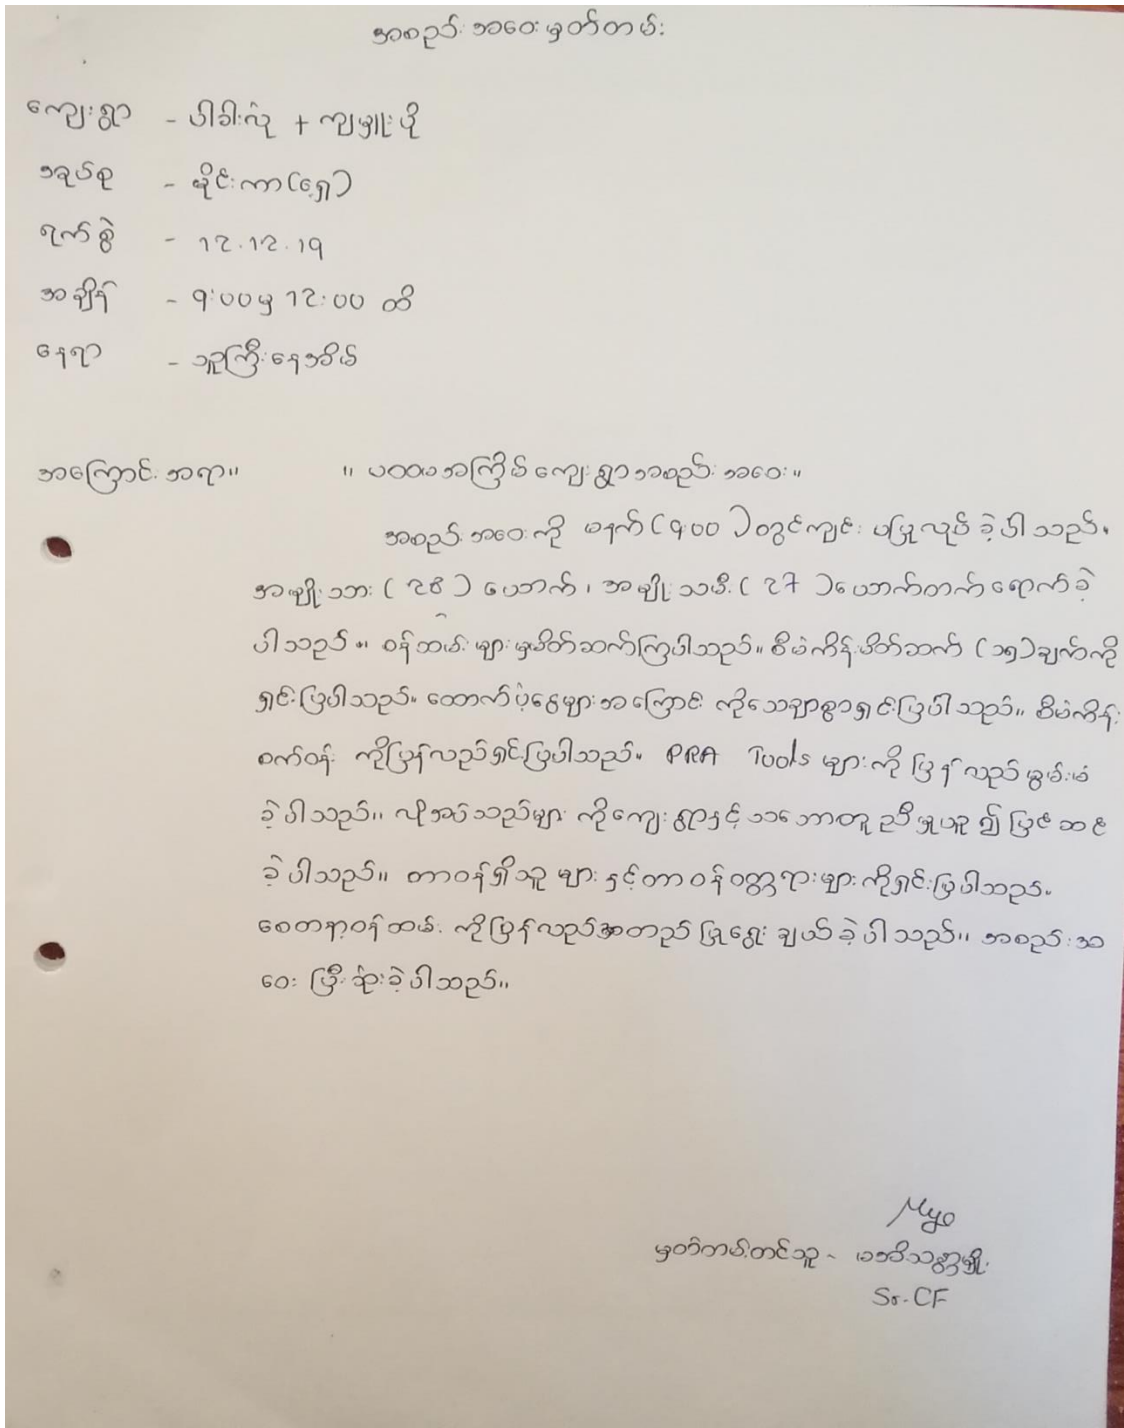 အစည်းအဝေးမှတ်တမ်း
ကျေးရွာ - ပါခါးလုံ + ကျမှူးပို
အုပ်စု - မိုင်းကာ(ရှေ့)
ရက်စွဲ - ၁၂.၁၂.၁၉
အချိန် - ၉:၀၀ မှ ၁၂:၀၀ ထိ
နေရာ - သူကြီးနေအိမ်
အကြောင်းအရာ။ ။ ပထမအကြိမ်ကျေးရွာအစည်းအဝေး။
အစည်းအဝေးကို မနက် (၉:၀၀) တွင်ကျင်းပပြုလုပ်ခဲ့ပါသည်။
အမျိုးသား (28) ယောက်၊ အမျိုးသမီး (27) ယောက်တက်ရောက်ခဲ့
ပါသည်။ ဝန်ထမ်းများမှမိတ်ဆက်ကြပါသည်။ စီမံကိန်းမိတ်ဆက် (၁၅)ချက်ကို
ရှင်းပြပါသည်။ ထောက်ပံ့ငွေများအကြောင်းကိုသေချာစွာရှင်းပြပါသည်။ စီမံကိန်း
စက်ဝန်းကိုပြန်လည်ရှင်းပြပါသည်။ PRA Tools များကိုပြန်လည်မွမ်းမံ
ခဲ့ပါသည်။ လိုအပ်သည်များကိုကျေးရွာနှင့်သဘောတူညီမှုယူ၍ပြင်ဆင်
ခဲ့ပါသည်။ တာဝန်ရှိသူများနှင့်တာဝန်ဝတ္တရားများကိုရှင်းပြပါသည်။
စေတနာ့ဝန်ထမ်းကိုပြန်လည်အတည်ပြုရွေးချယ်ခဲ့ပါသည်။ အစည်းအ
ဝေးပြီးဆုံးခဲ့ပါသည်။
Myo
မှတ်တမ်းတင်သူ - မအိသန္တာမျိုး
Sr.CF